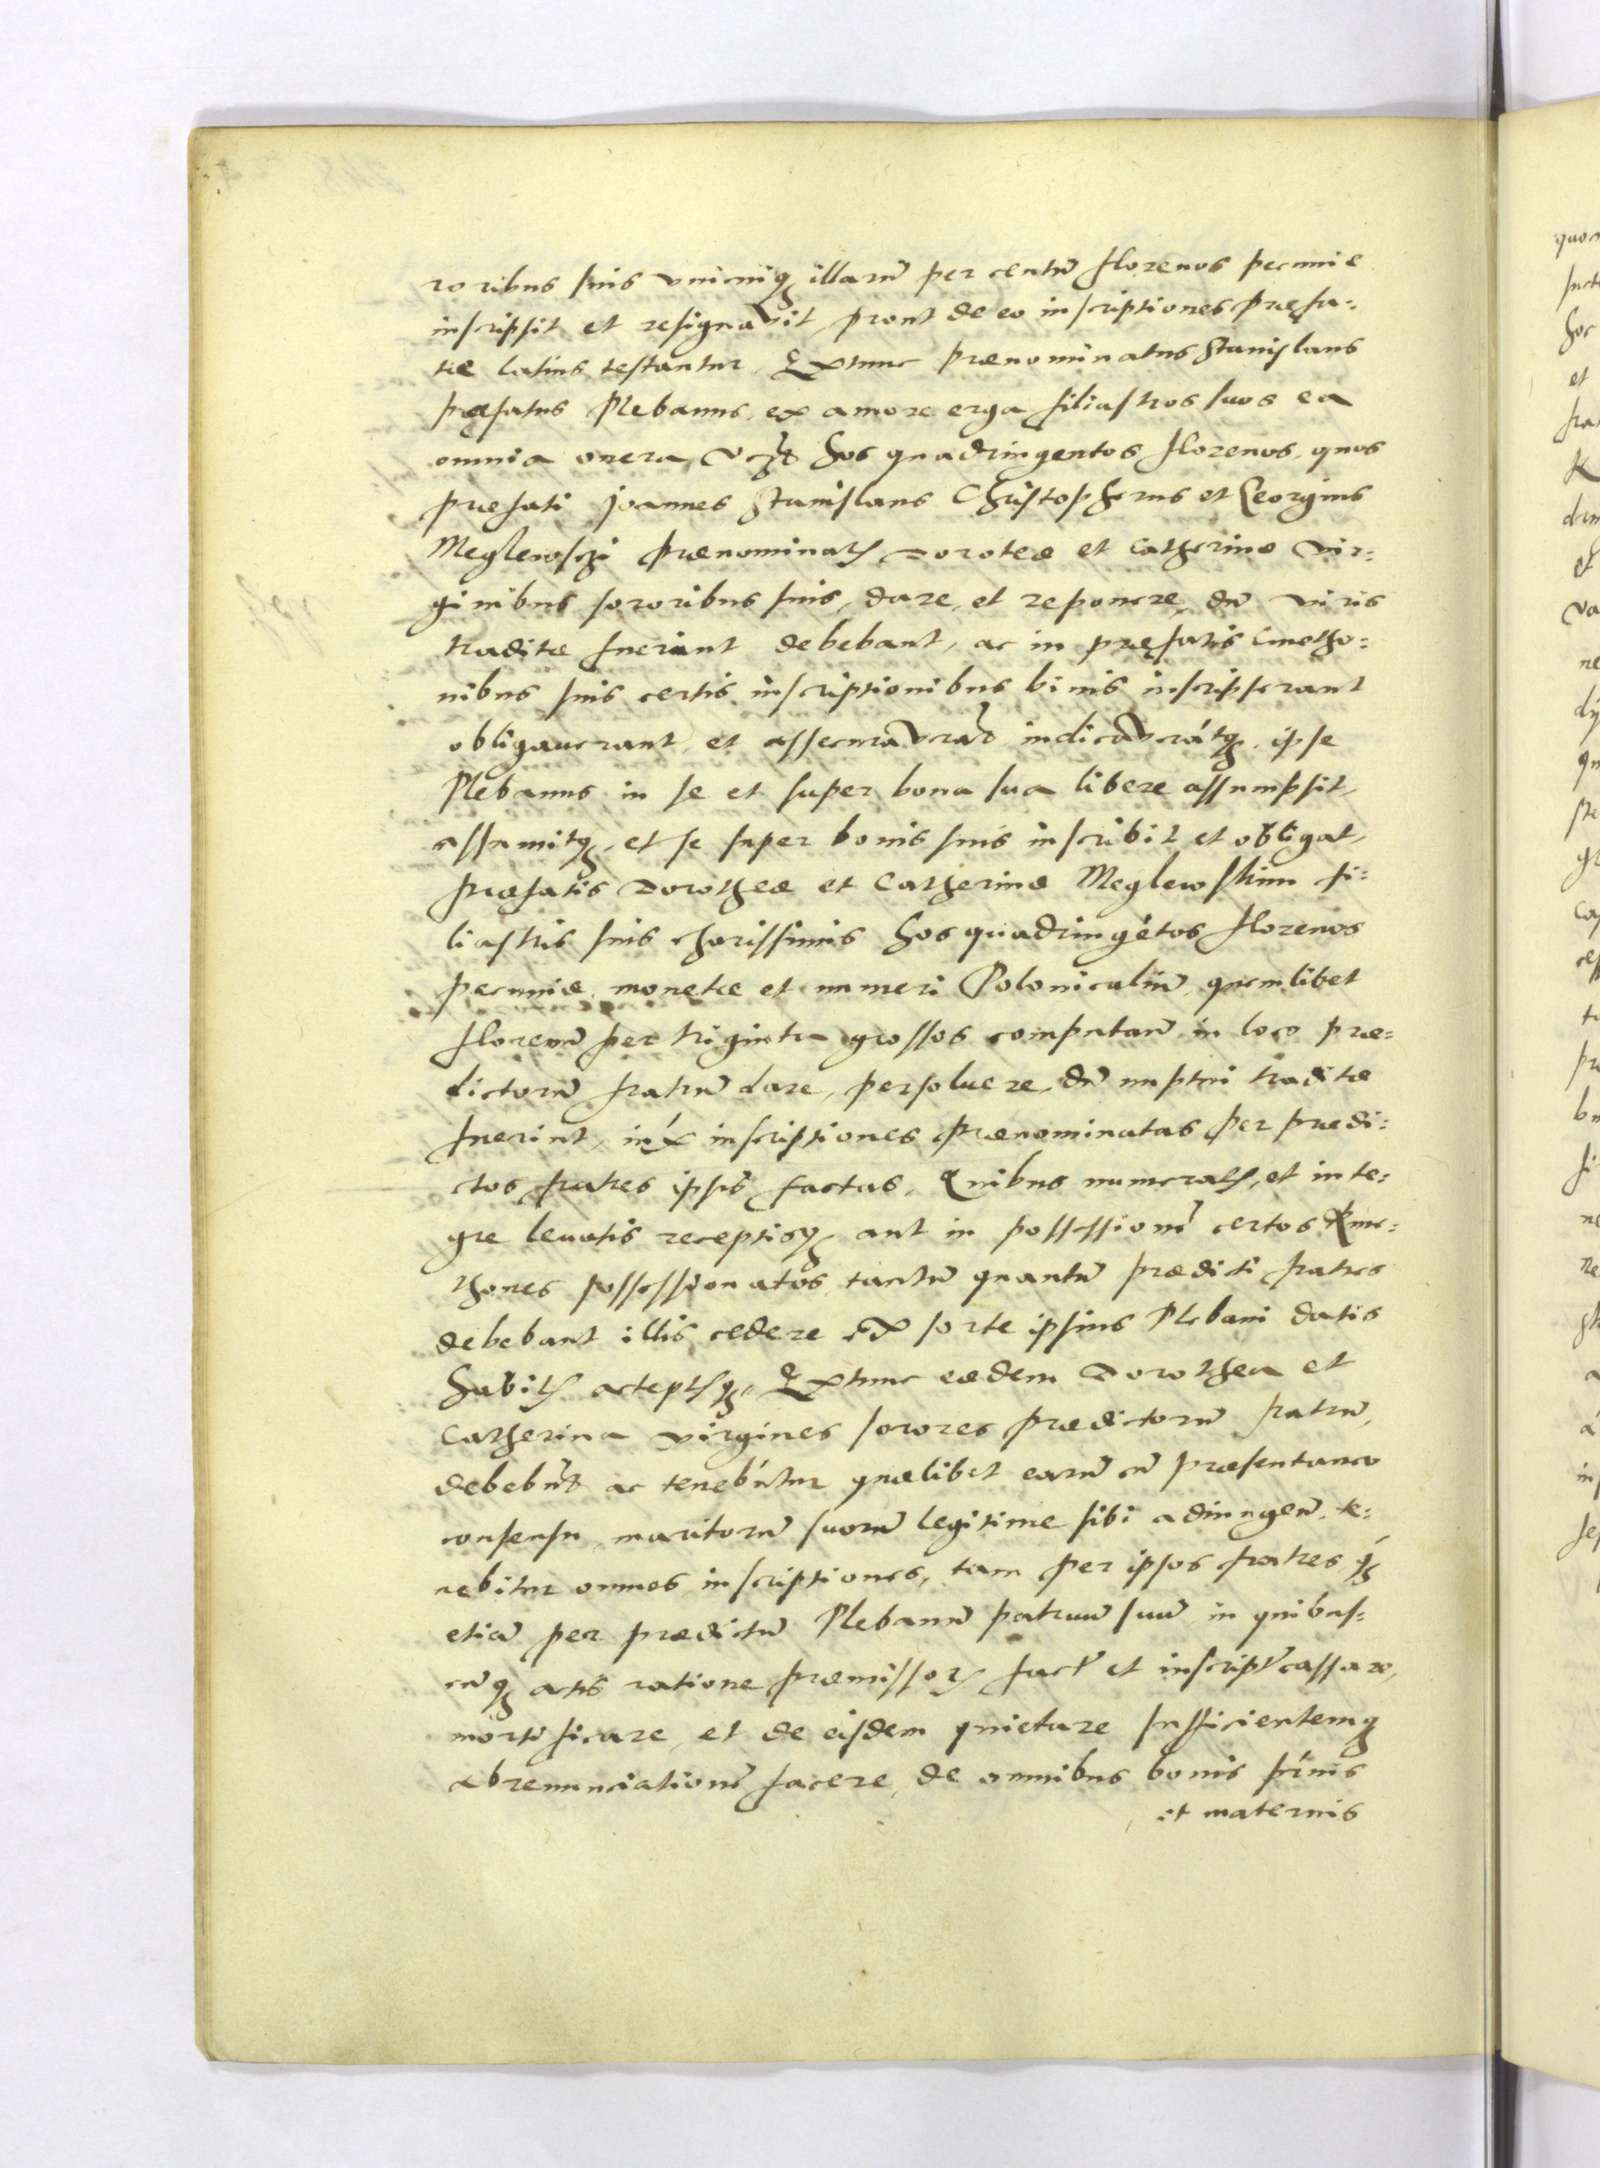 roribus suis vnicuiq illarū per centū florenos pecuniæ
inscripsit et resignavit prout de eo inscriptiones præfa=
tæ latius testantur. Extunc prænominatus Stanislaus
præfatus Plebanus, ex amore erga filiastros suos ea
omnia onera, vcz hos quadringentos florenos, quos
præfati Joannes Stanislaus Christopherus et Georgius
Meglewsczi prænominatis Doroteæ et Catherinæ vir=
ginibus sororibus suis, dare, et reponere, dū viris
traditæ fuerint debebant, ac in præfatis Cmetho=
nibus suis certis inscriptionibus binis inscripserant
obligauerant, et assecuraverāt indicaverātq, ipse
Plebanus in se et super bona sua libere assumpsit,
assumitq, et se super bonis suis inscribit et obligat,
præfatis Dorotheæ et Catherinæ Meglewskim fi=
liastris suis charissimis hos quadringētos florenos
pecuniæ, monetæ et numeri Polonicaliū, quemlibet
florenū per triginta grossos computanā, in loco præ=
dictorū fratrum dare, persoluere, dū nuptui traditæ
fuerint, iux inscriptiones prænominatas per prædi=
ctos fratres ipsis factas, Quibus numeratis, et inte=
gre leuatis receptisq aut in possessionē certos Kme=
thones possessionatos, tantū quantū prædicti fratres
debebant illis cedere ex sorte ipsius Plebani datis
habitis acceptisq, Extunc eædem Dorothea et
Catherina virgines sorores prædictorū fratrū,
debebūt ac tenebūtur quælibet earū cū præsentaneo
consensu, maritorū suorū legitime sibi adiungen, te=
nebitur omnes inscriptiones, tam per ipsos fratres q
etiā per prædictū Plebanū patruū suū in quibus=
cūq actis ratione præmissorū fact et inscript cassare,
mortificare, et de eisdem quietare sufficientemq
abrenunciationē facere, de omnibus bonis prnis
et maternis